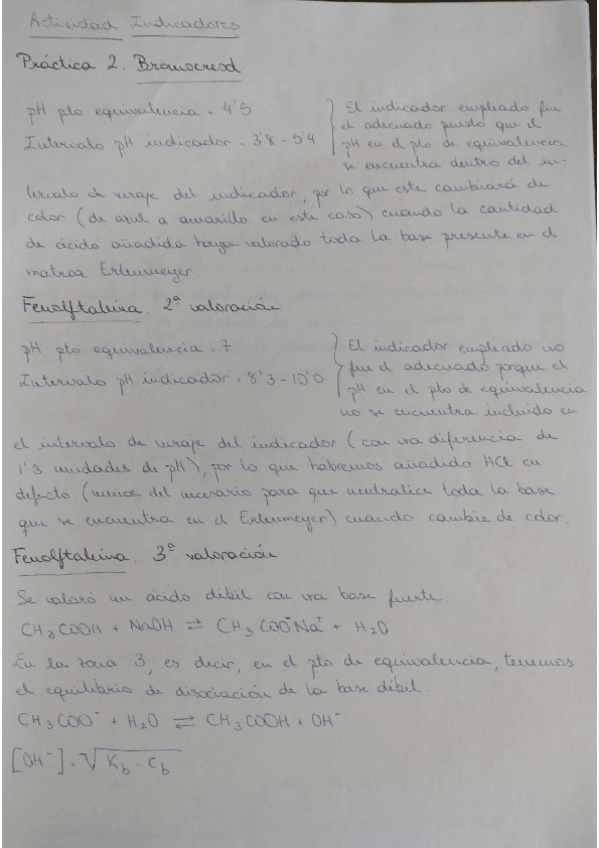 Actividad Indicadores
Práctica 2. Bromocresol
pH pto equivalencia = 4'5
Intervalo pH indicador = 3'8 - 5'4
El indicador empleado fue
el adecuado puesto que el
pH en el pto de equivalencia
se encuentra dentro del in-
tervalo de viraje del indicador, por lo que este cambiará de
color (de azul a amarillo en este caso) cuando la cantidad
de ácido añadida haya valorado toda la base presente en el
matraz Erlenmeyer
Fenolftaleína. 2ª valoración
pH pto equivalencia = 7
Intervalo pH indicador = 8'3 - 10'0
El indicador empleado no
fue el adecuado porque el
pH en el pto de equivalencia
no se encuentra incluido en
el intervalo de viraje del indicador (con una diferencia de
1'3 unidades de pH), por lo que habremos añadido HCl en
defecto (menos del necesario para que neutralice toda la base
que se encuentra en el Erlenmeyer) cuando cambie de color.
Fenolftaleína. 3ª valoración
Se valoró un ácido débil con una base fuerte.
CH₃COOH + NaOH ⇌ CH₃COO⁻Na⁺ + H₂O
En la zona 3, es decir, en el pto de equivalencia, tenemos
el equilibrio de disociación de la base débil.
CH₃COO⁻ + H₂O ⇌ CH₃COOH + OH⁻
[OH⁻] = √(K_b · C_b)